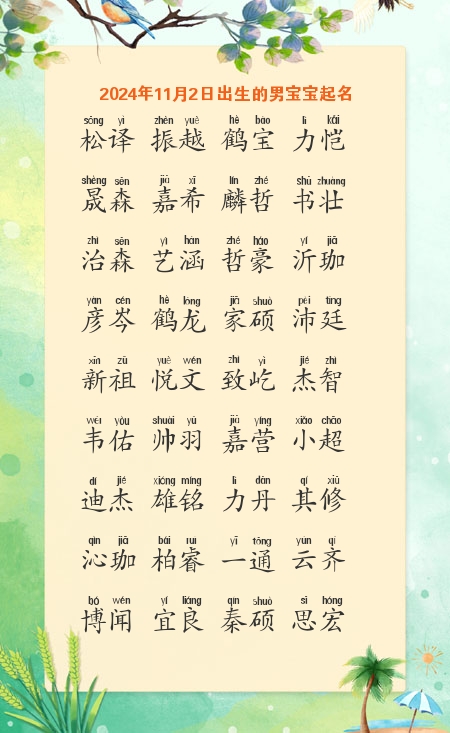 2024年11月2日出生的男宝宝起名
sōng yì zhèn yuè hè bǎo lì kǎi
松译 振越 鹤宝 力恺
shèng sēn jiā xī lín zhé shū zhuàng
晟森 嘉希 麟哲 书壮
zhì sēn yì hán zhé háo yí jiā
治森 艺涵 哲豪 沂珈
yàn cén hè lóng jiā shuò pèi tíng
彦岑 鹤龙 家硕 沛廷
xīn zǔ yuè wén zhì yì jié zhì
新祖 悦文 致屹 杰智
wéi yòu shuài yǔ jiā yíng xiǎo chāo
韦佑 帅羽 嘉营 小超
dí jié xióng míng lì dān qí xiū
迪杰 雄铭 力丹 其修
qìn jiā bǎi ruì yī tōng yún qí
沁珈 柏睿 一通 云齐
bó wén yí liáng qín shuò sī hóng
博闻 宜良 秦硕 思宏